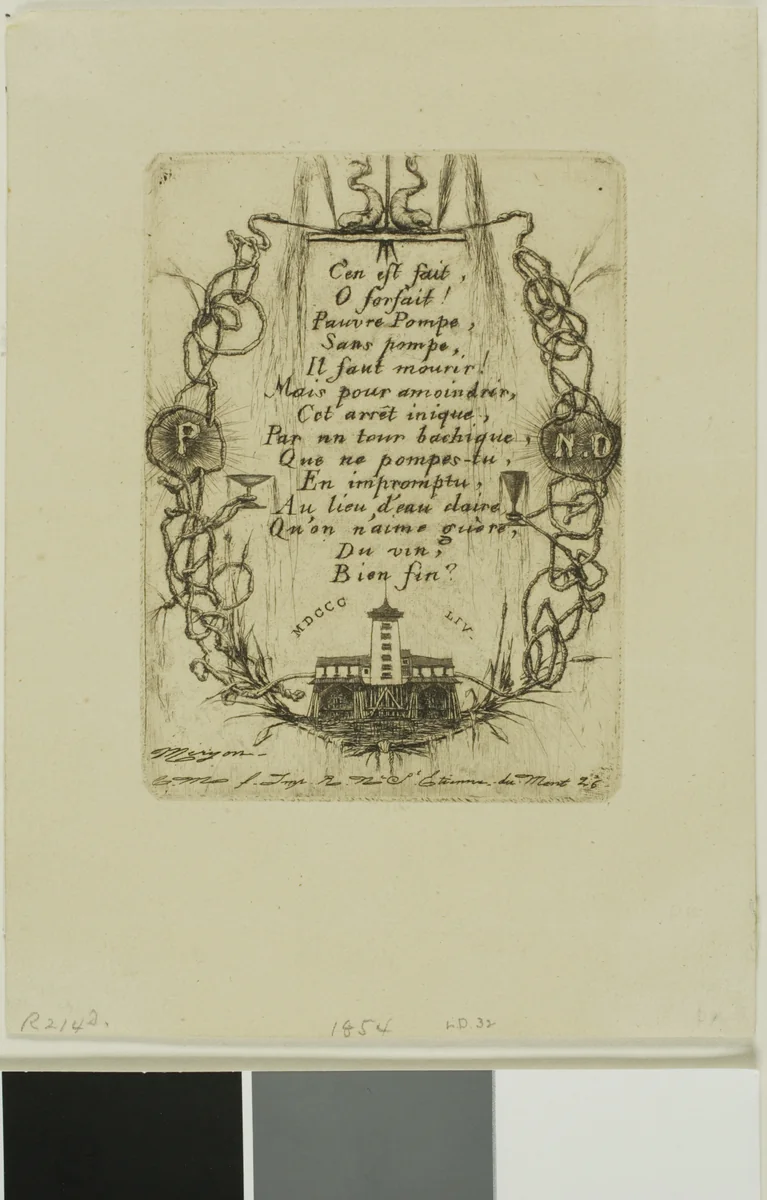 C'en est fait,
O forfait!
Pauvre Pompe,
Sans pompe,
Il faut mourir!
Mais pour amoindrir,
Cet arrêt inique,
Par un tour bachique,
Que ne pompes-tu,
En impromptu,
Au lieu d'eau claire
Qu'on n'aime guère,
Du vin,
Bien fin?
P
N.D
MDCCC LIV.
Meryon
f. Imp. R. N. St Etienne du Mont 26.
R214
1854
LD.32